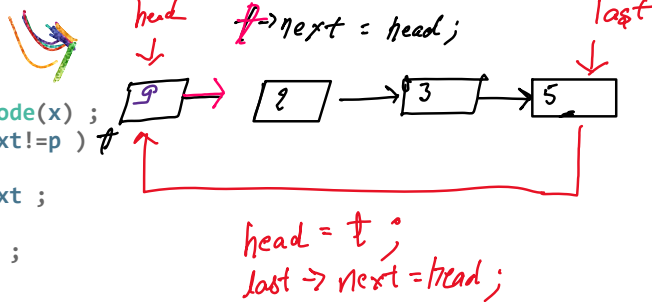 head
t->next = head;
last
9
2
3
5
ode(x) ;
xt!=p ) t
xt ;
;
head = t;
last -> next = head;